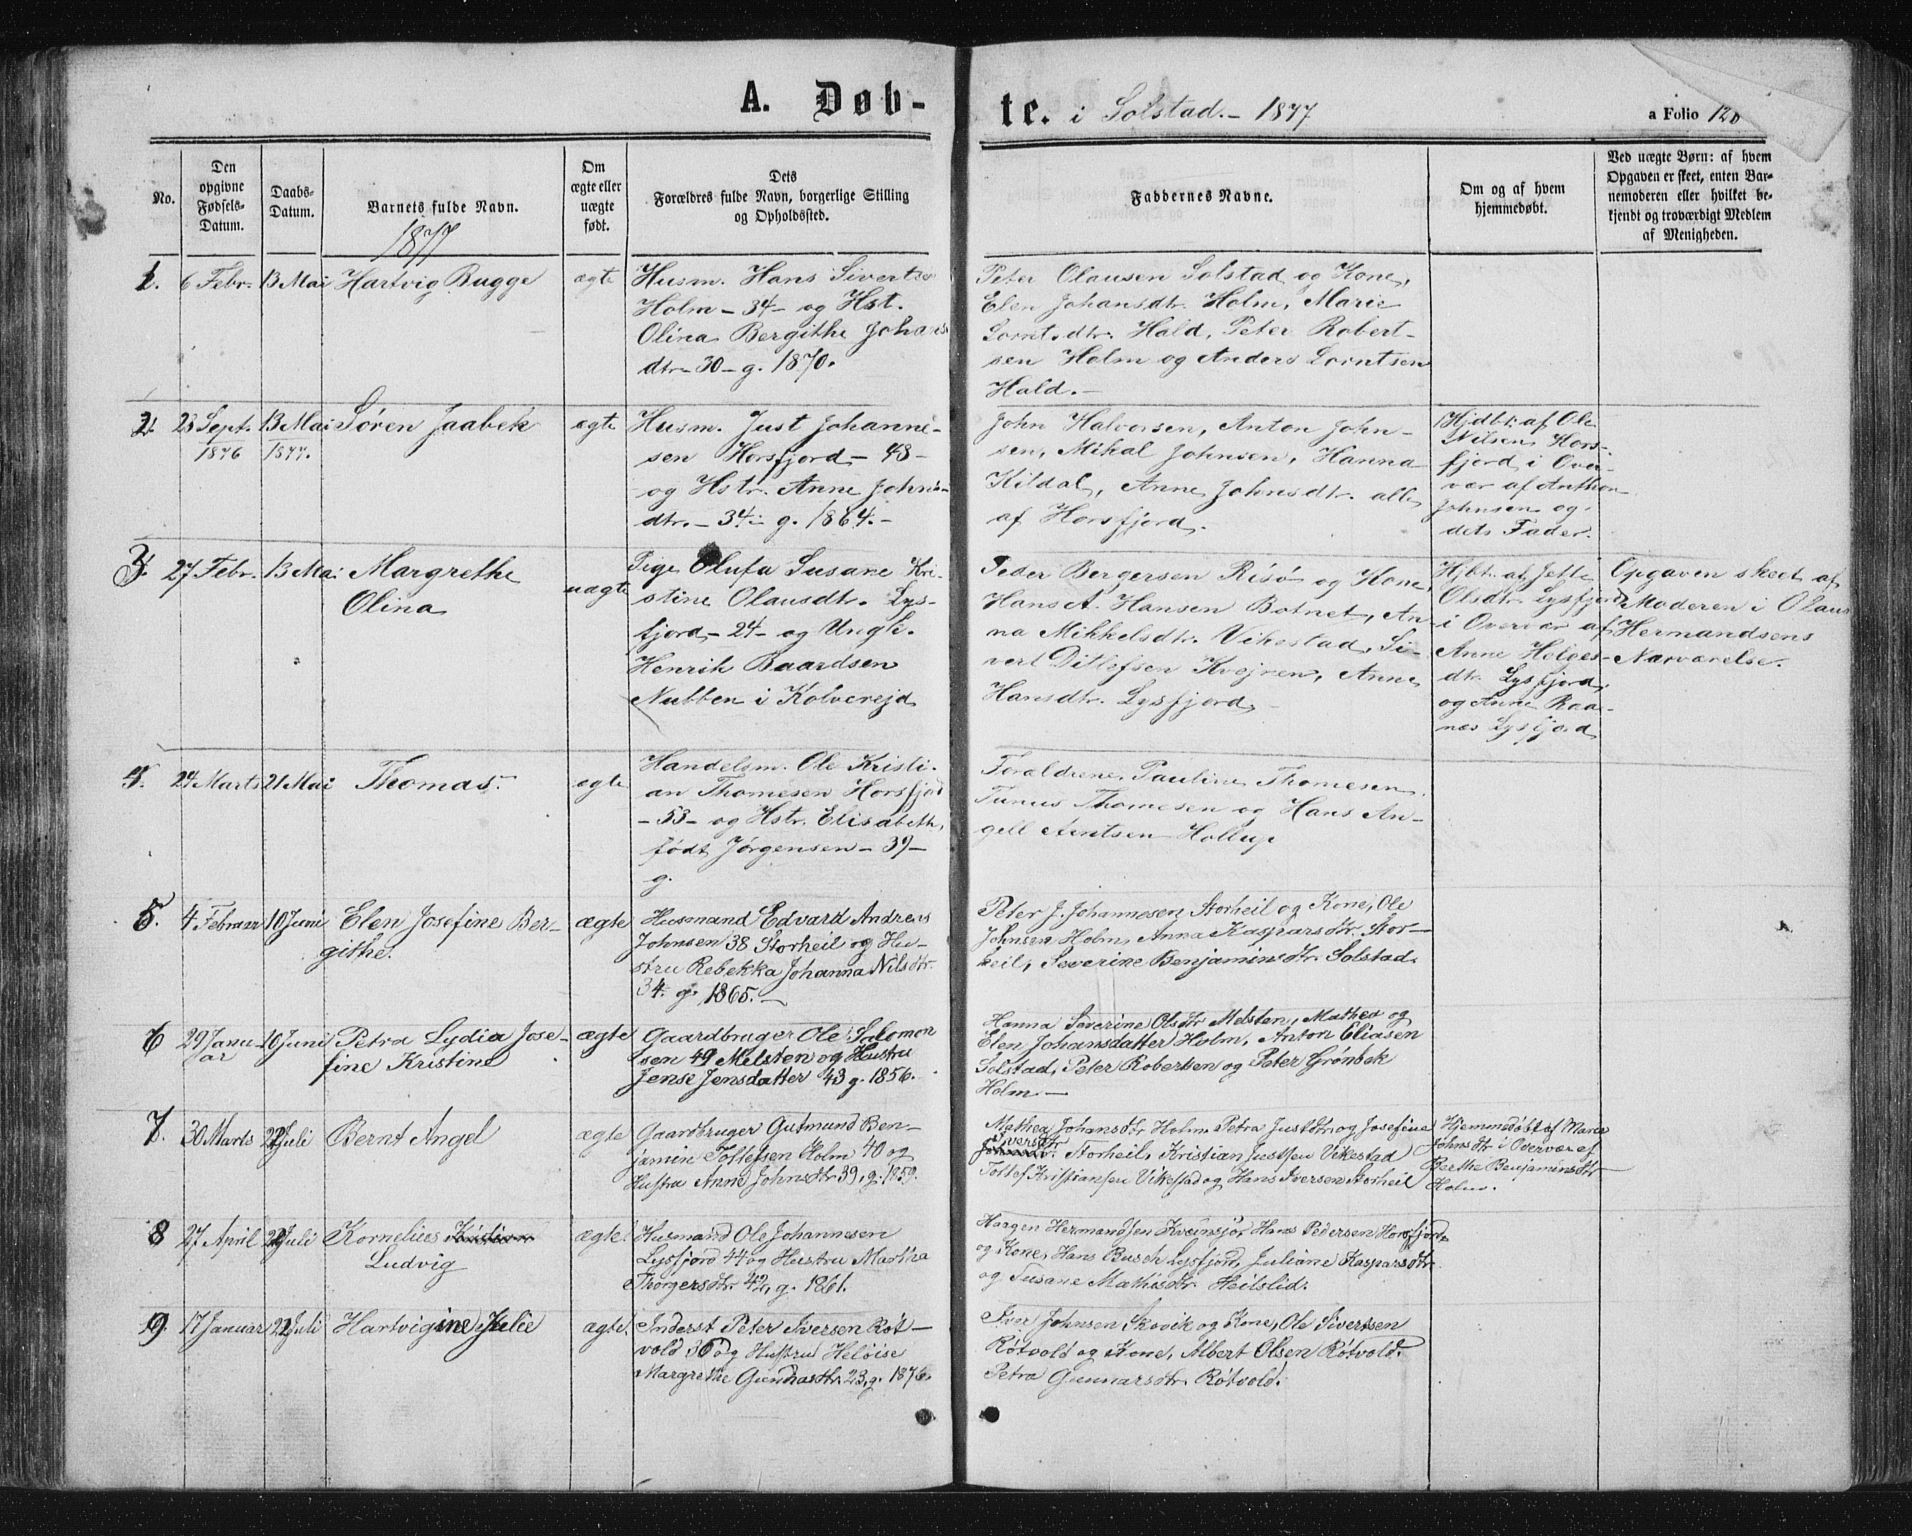 A. Døb-
te. i Solstad. - 1877
a Folio 120
No.
Den
opgivne
Fødsels-
Datum.
Daabs-
Datum.
Barnets fulde Navn.
1877
Om
ægte eller
uægte
født.
Dets
Forældres fulde Navn, borgerlige Stilling
og Opholdssted.
Faddernes Navne.
Om og af hvem
hjemmedøbt.
Ved uægte Børn: af hvem
Opgaven er skeet, enten Bar-
nemoderen eller hvilket be-
kjendt og troværdigt Medlem
af Menigheden.
1. 6 Febr. 13 Mai Hartvig Bugge ægte
Husm. Hans Sivertsen
Holm - 34 - og Hst.
Olina Bergithe Johans
dtr - 30 - g. 1870.
Peter Olausen Solstad og Kone,
Elen Johansdtr. Holm, Marie
Lorntsdtr. Hald, Peter Robert-
sen Holm og Anders Lorntsen
Hald. -
2. 23 Sept. 13 Mai Søren Jaabek ægte
1876 1877.
Husm. Just Johanne-
sen Horsfjord - 48 -
og Hstr. Anne Johns-
dtr. - 34 - g. 1864. -
John Halvorsen, Anton John-
sen, Mikal Johnsen, Hanna
Kildal, Anne Johnsdtr. alle
af Horsfjord.
Hjdbt. af Ole
Nilsen Hors-
fjord i Over-
vær af Anthon
Johnsen og
dets Fader.
3. 27 Febr. 13 Mai Margrethe uægte
Olina
Pige Olufa Susane Kri-
stine Olausdtr. Lys-
fjord - 24 - og Ungk.
Henrik Baardsen
Nubben i Kolverejd
Peder Bergersen Risø og Kone,
Hans A. Hansen Botnet, An-
na Mikkelsdtr. Vikestad, Si-
vert Ditlefsen Kvejren, Anne
Hansdtr. Lysfjord -
Hjbt. af Jette
Olsdtr. Lysfjord
i Overvær af
Anne Helges-
dtr. Lysfjord,
og Anne Raa-
nes Lysfjord
Opgaven skeet af
Moderen i Olaus
Hermandsens
Nærværelse.
4. 24 Marts 21 Mai Thomas. ægte
Handelsm. Ole Kristi-
an Thomesen Horsfjord
- 53 - og Hstr. Elisabeth,
født Jørgensen - 39 -
g.
Forældrene, Pauline Thomesen
Tunus Thomesen og Hans An-
gell Arntsen Hollup
5. 4 Februar 10 Juni Elen Josefine Ber- ægte
githe.
Husmand Edvard Andreas
Johnsen 38 Storheil og Hu-
stru Rebekka Johanna Nilsdtr.
34. g. 1865. -
Peter J. Johannesen Storheil og Kone, Ole
Johnsen Holm, Anna Kaspersdtr. Stor-
heil, Severine Benjaminsdtr. Solstad.
6 29 Janu- 10 Juni Petra Lydia Jose- ægte
ar fine Kristine
Gaardbruger Ole Salomon
sen 49 Melsten og Hustru
Jense Jensdatter 43 g. 1856.
Hanna Severine Olsdtr Melsten, Mathea og
Elen Johansdatter Holm, Anton Eliasen
Solstad, Peter Robertsen og Peter Grønbek
Holm -
7. 30 Marts 22 Juli Bernt Angel ægte
Gaardbruger Gutmund Ben-
jamin Tollefsen Holm 40 og
Hustru Anne Johnsdtr 39, g. 1859.
Mathea Johansdtr Holm, Petra Justdtr og Josefine
Iversdtr
Storheil, Kristian Justsen Vikestad
Tollef Kristiansen Vikestad og Hans Iversen Storheil
Hjemmedøbt af Maria
Johnsdtr i Overvær af
Berthe Benjaminsdtr
Holm.
8 27 April 22 Juli Kornelius Kristian ægte
Ludvig
Husmand Ole Johannesen
Lysfjord 44 og Hustru Martha
Thorgersdtr 42, g. 1861.
Haagen Hermandsen Kveinsjø, Hans Pedersen Horsfjord
og Kone, Hans Busch Lysfjord, Juliane Kaspersdtr
og Susane Mathisdtr. Heilslid.
9. 17 Januar 22 Juli Hartvigine Julie ægte
Inderst Peter Iversen Røt-
vold 30 og Hustru Heloise
Margrethe Gunnarsdtr. 23, g. 1876.
Iver Johnsen Skovik og Kone, Ole Sivertsen
Røtvold og Kone, Albert Olsen Røtvold.
Petra Gunnarsdtr. Røtvold.